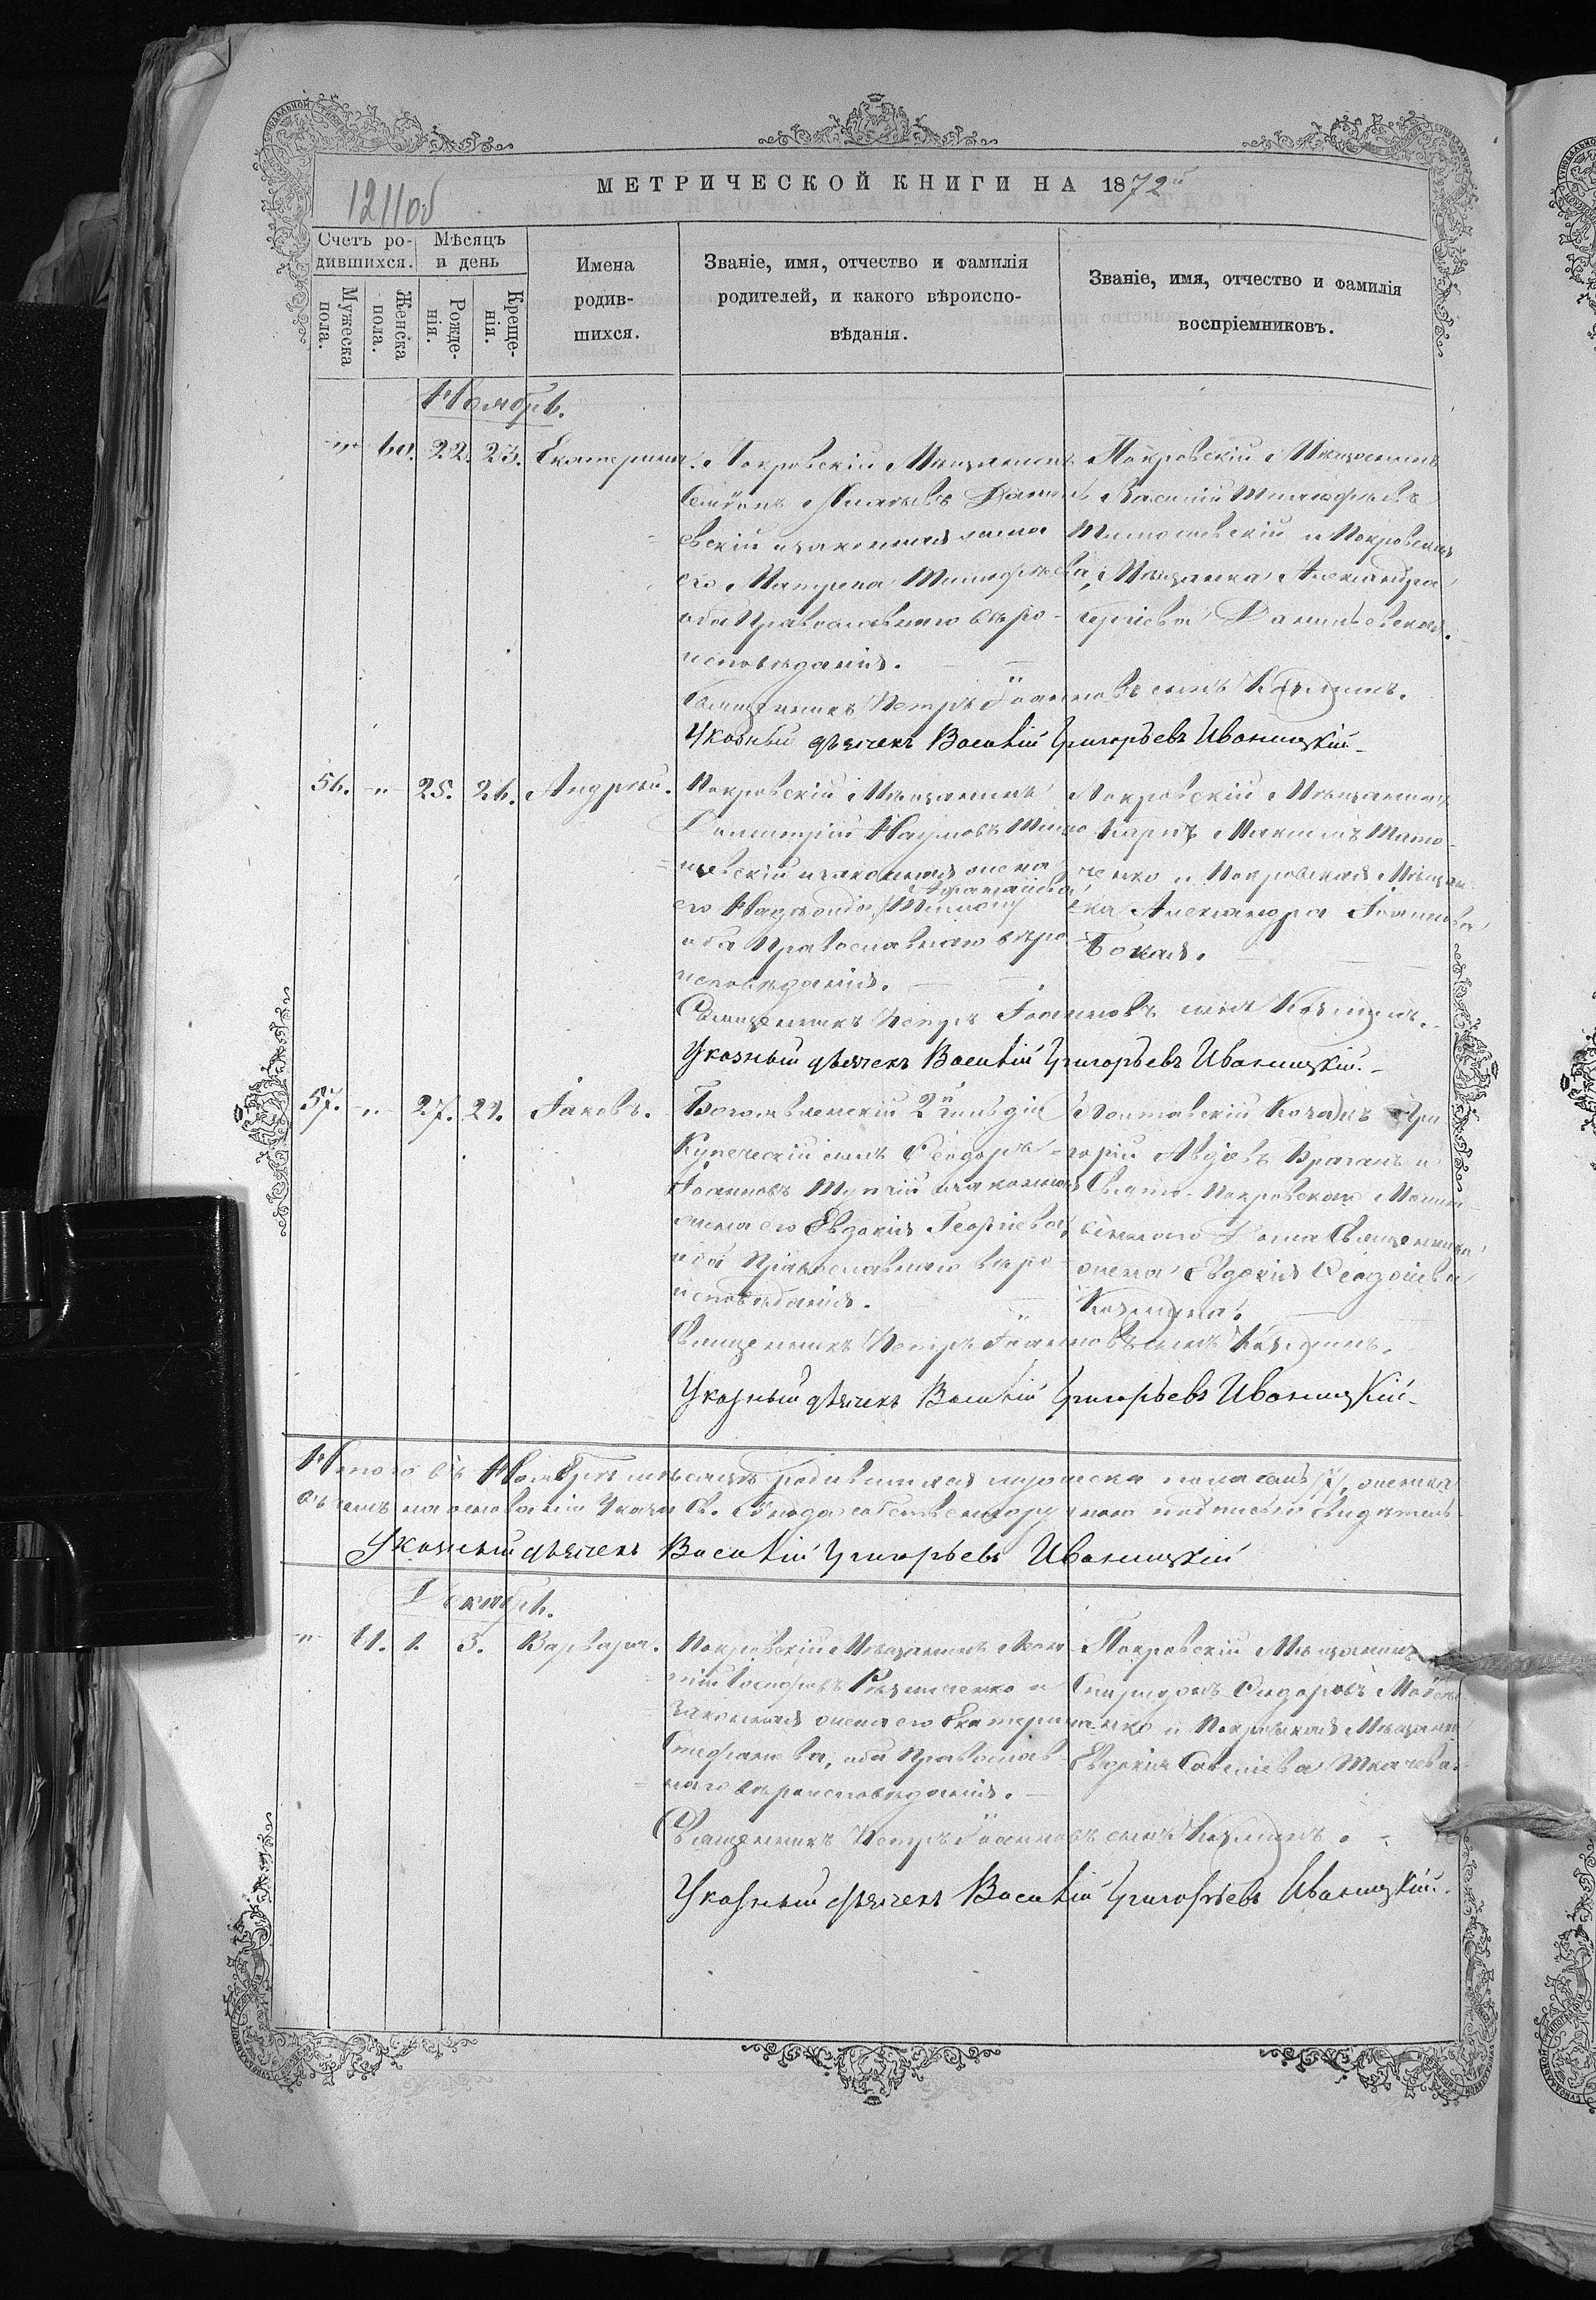 МЕТРИЧЕСКОЙ КНИГИ НА 1872й
1211об
Счетъ ро-
дившихся.
Мѣсяцъ
и день
Мужеска
пола.
Женска
пола.
Рожде-
нія.
Креще-
нія.
Имена
родив-
шихся.
Званіе, имя, отчество и фамилія
родителей, и какого вѣроиспо-
вѣданія.
Званіе, имя, отчество и фамилія
воспріемниковъ.
Ноябрь.
60. 22. 23. Екатерина.
Покровскій Мѣщанинъ
Данил
евскій и законная жена
его Матрона Тимофѣева,
оба Православнаго вѣро-
исповѣданія.
Покровскій Мѣщанинъ
Василій Тимофѣевъ
и Покровская
Мѣщанка Александра
Сергіева Данилевская.
Священникъ Петръ Іоанновъ сынъ Козминъ.
Указный дьячекъ Василій Григорьевъ Иваницкій
56. 25. 26. Андрей.
Покровскій Мѣщанинъ
Димитрій Наумовъ
и законная жена
его
оба Православнаго вѣро-
исповѣданія.
Покровскій Мѣщанинъ
Карпъ
и Покровская Мѣщан
ка Александра Іоаннова
Священникъ Петръ Іоанновъ сынъ Козминъ.
Указный дьячекъ Василій Григорьевъ Иваницкій
57. 27. 29. Іаковъ.
2й гильдіи
Купеческій сынъ Ѳеодоръ
Іоанновъ и законная
жена его Евдокія Георгіева,
оба Православнаго вѣро-
исповѣданія.
Полтавскій Козакъ Гри
горій и
Свято-Покровскаго
Священника
жена Евдокія
Козмина.
Священникъ Петръ Іоанновъ сынъ Козминъ.
Указный дьячекъ Василій Григорьевъ Иваницкій
Итого въ Ноябрѣ мѣсяцѣ родившихся мужеска пола семь /7/, женска
О чемъ на основаніи Указа Св. Синода собственноручною подписью свидѣтель
Указный дьячекъ Василій Григорьевъ Иваницкій
Декабрь.
61. 1. 3. Варвара.
Покровскій Мѣщанинъ
Іосифовъ и
законная жена его Екатерина
Стефанова, оба Православ
наго вѣроисповѣданія.
Покровскій Мѣщанинъ
Спиридонъ Сидоровъ
и Покровская Мѣщанка
Евдокія Савеліева Ткачева.
Священникъ Петръ Іоанновъ сынъ Козминъ.
Указный дьячекъ Василій Григорьевъ Иваницкій.